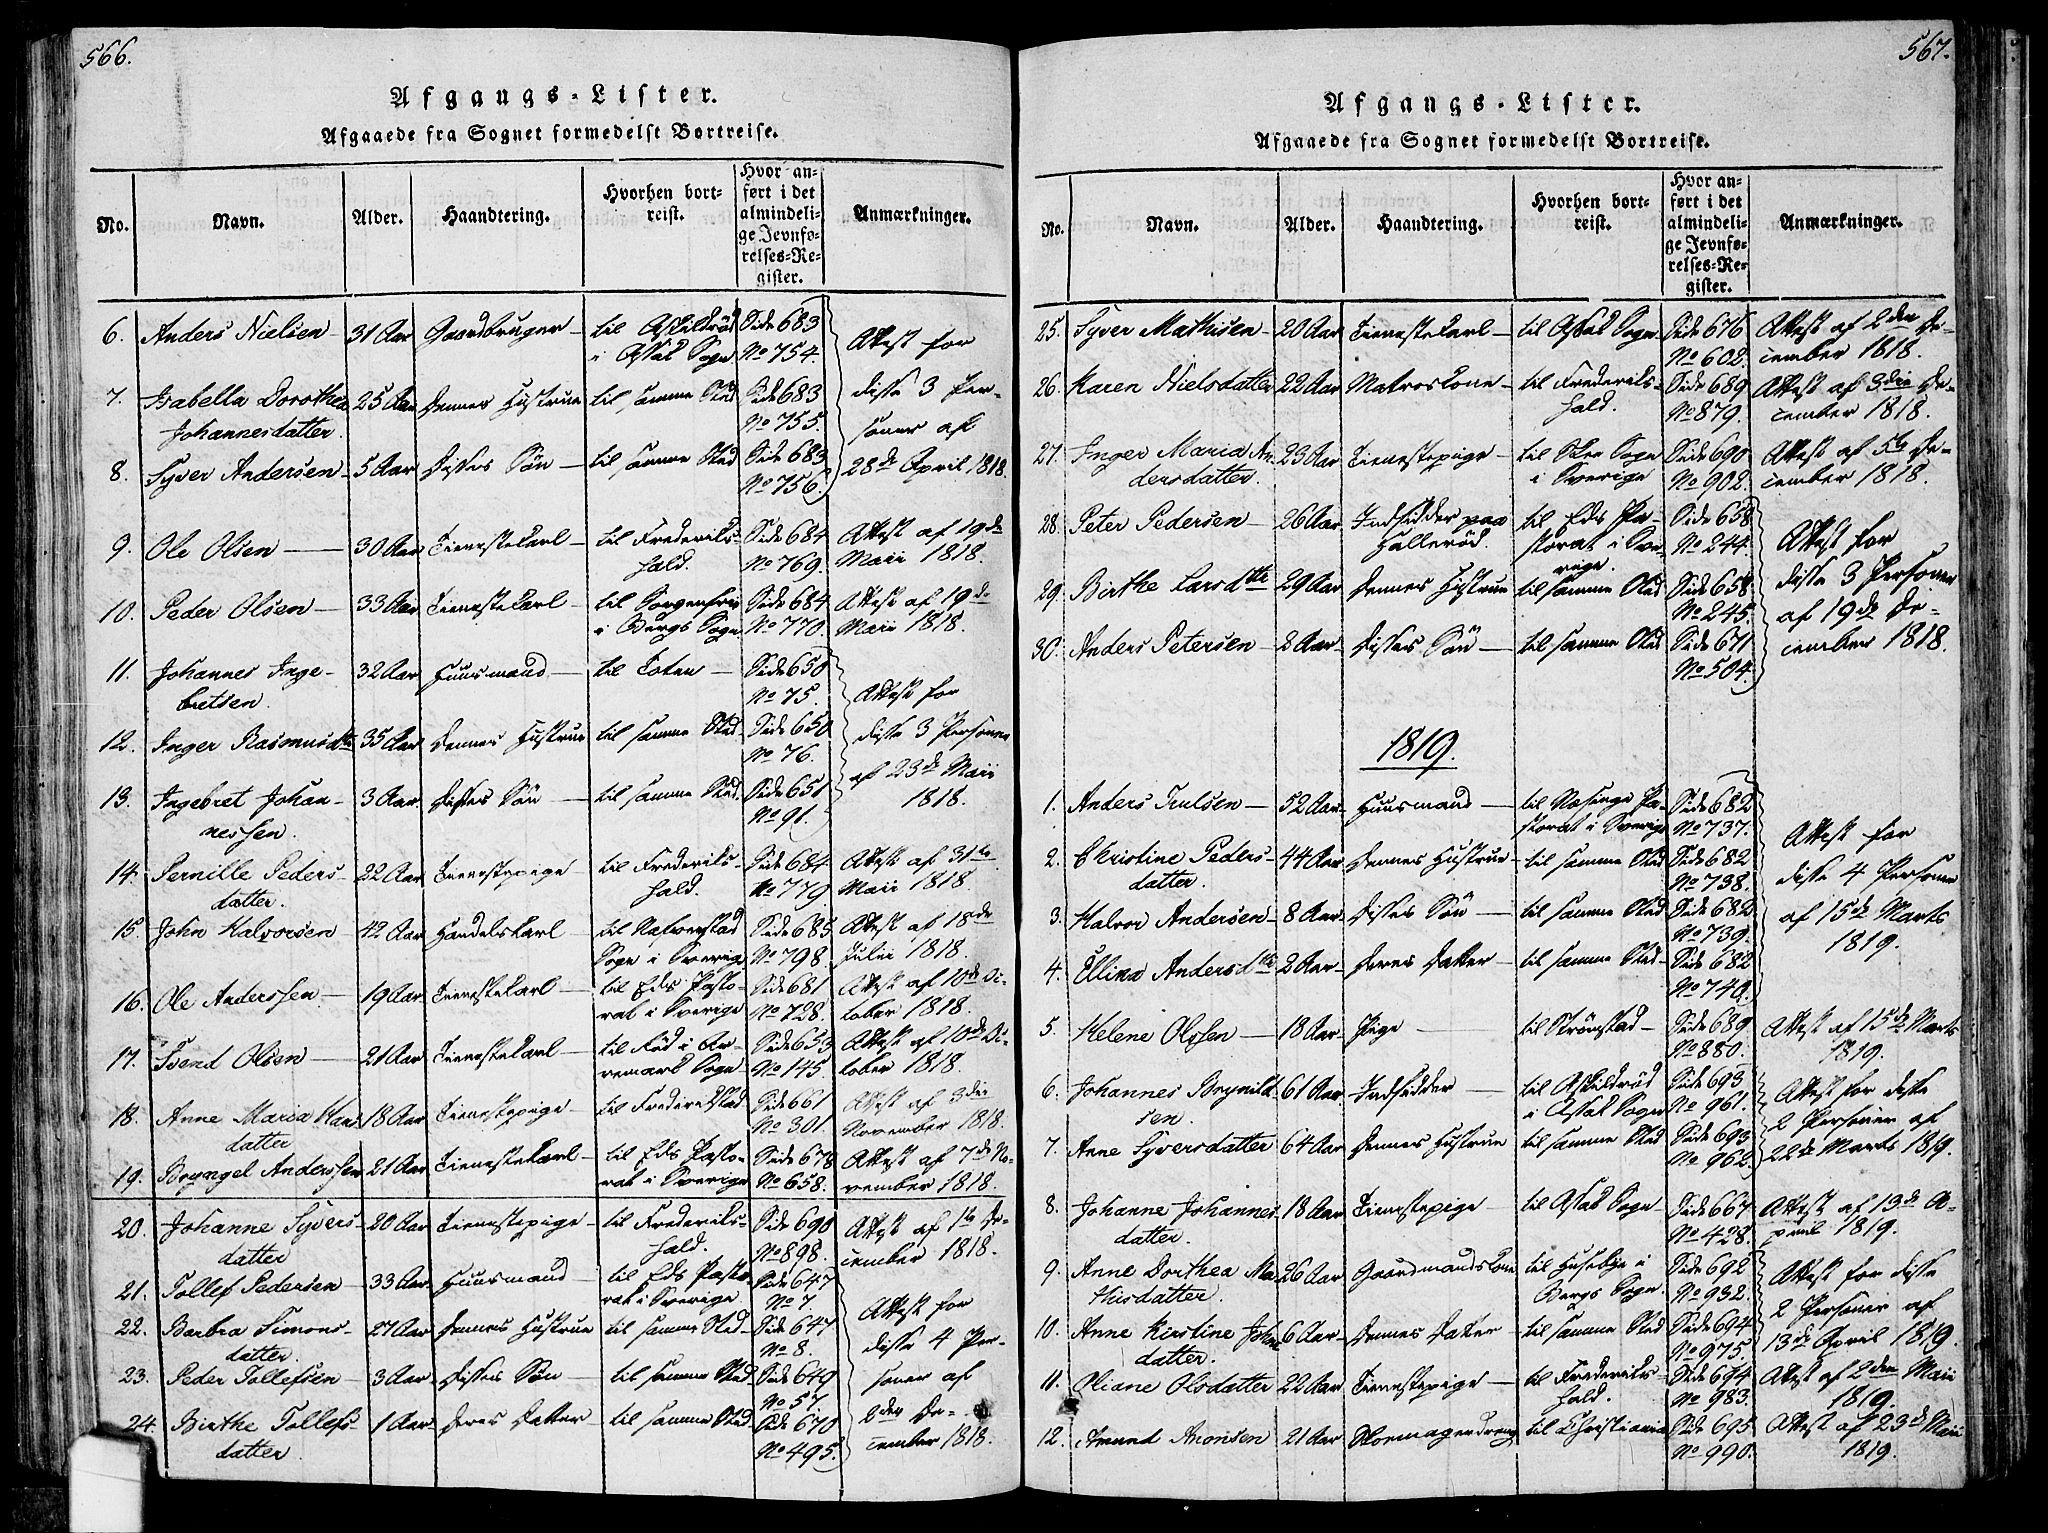 566.
Afgangs-Lister.
Afgaaede fra Sognet formedelst Bortreise.
No. Navn. Alder. Haandtering. Hvorhen bortreist. Hvor anført i det almindelige Jevnførelses-Register. Anmærkninger.
6. Anders Nielsen 31 Aar Gaardbruger til Askildrød Side 683
i Assak Sogn No 754. Attest for
7. Isabella Dorothea 25 Aar Dennes Hustrue til samme Sted Side 683 disse 3 Per-
Johannesdatter. No 755. soner af
8. Syver Andersen 5 Aar Disses Søn til samme Sted Side 683 28de April 1818.
No 756.
9. Ole Olsen 30 Aar Tienestekarl til Frederiks- Side 684 Attest af 19de
hald. No 769. Maii 1818.
10. Peder Olsen 33 Aar Tienestekarl til Sorgenfrie Side 684 Attest af 19de
i Bergs Sogn No 770. Maii 1818.
11. Johannes Inge- 32 Aar Huusmand til Toten Side 650
bretsen. No 75. Attest for
12. Inger Rasmusdtr 35 Aar Dennes Hustrue til samme Sted Side 650 disse 3 Personer
No 76. af 23de Maii
13. Ingebret Johan- 3 Aar Disses Søn til samme Sted Side 651 1818.
nessen. No 91.
14. Pernille Peders- 22 Aar Tienestepige til Frederiks- Side 684 Attest af 31te
datter. hald. No 779 Maii 1818.
15. John Halvorsen 42 Aar Handelskarl til Side 685 Attest af 18de
Sogn i Sverrig No 798. Julii 1818.
16. Ole Anderssen 19 Aar Tienestekarl til Eds Pasto- Side 681 Attest af 10de Oc-
rat i Sverige No 728. tober 1818.
17. Svend Olsen 21 Aar Tienestekarl til Rød i Ar- Side 653 Attest af 10de Oc-
remark Sogn No 145. tober 1818.
18. Anne Maria Hans 18 Aar Tienestepige til Frederikstad Side 661 Attest af 3die
datter No 301. November 1818.
19. Bryngel Anderssen 21 Aar Tienestekarl til Eds Pasto- Side 678 Attest af 7de No-
rat i Sverige No 658. vember 1818.
20. Johanne Syvers- 20 Aar Tienestepige til Frederiks- Side 690 Attest af 1te De-
datter hald. No 898. cember 1818.
21. Tollef Pedersen 33 Aar Huusmand til Eds Pasto- Side 647
rat i Sverige No 7 Attest for
22. Barbra Simons- 27 Aar Dennes Hustrue til samme Sted Side 647 disse 4 Per-
datter. No 8.
23. Peder Tollefsen 3 Aar Disses Søn til samme Sted Side 649 soner af
No 57. 2den De-
24. Birthe Tollefs- 1 Aar Deres Datter til samme Sted Side 670 cember 1818.
datter No 495.
567.
Afgangs-Lister.
Afgaaede fra Sognet formedelst Bortreise.
No. Navn. Alder. Haandtering. Hvorhen bortreist. Hvor anført i det almindelige Jevnførelses-Register. Anmærkninger.
25. Syver Mathisen 20 Aar Tienestekarl til Assak Sogn Side 676 Attest af 2den De-
No 602. cember 1818.
26. Karen Nielsdatter 22 Aar Matroskone til Frederiks- Side 689 Attest af 3die De-
hald. No 879. cember 1818.
27. Inger Maria An- 23 Aar Tienestepige til Skee Sogn Side 690 Attest af 5te De-
dersdatter. i Sverige No 902. cember 1818.
28. Peter Pedersen 26 Aar Indsidder paa til Eds Pa- Side 658
Hallerød. storat i Sve- No 244. Attest for
rige.
29. Birthe Larsdttr 29 Aar Dennes Hustrue til samme Sted Side 658 disse 3 Personer
No 245. af 19de De-
30. Anders Petersen 2 Aar Disses Søn til samme Sted Side 671 cember 1818.
No 504.
1819.
1. Anders Trulsen 52 Aar Huusmand til Næsinge Pa- Side 682
storat i Sverig No 737. Attest for
2. Christine Peders- 44 Aar Dennes Hustrue til samme Sted Side 682 disse 4 Personer
datter. No 738.
3. Halvor Andersen 8 Aar Disses Søn til samme Sted Side 682 af 15de Marts
No 739. 1819.
4. Ellina Andersdttr 2 Aar Deres Datter til samme Sted Side 682
No 740.
5. Helene Olssen 18 Aar Pige til Strømstad Side 689 Attest af 15de Marts
No 880. 1819.
6. Johannes Brynild 61 Aar Indsidder til Askildrød Side 693 Attest for disse
sen. i Assak Sogn No 961. 2 Personer af
7. Anne Syversdatter 64 Aar Dennes Hustrue til samme Sted Side 693 22de Marts 1819.
No 962.
8. Johanne Johannes 18 Aar Tienestepige til Assak Sogn Side 667 Attest af 13de A-
datter. No 428. pril 1819.
9. Anne Dorthea Ma 26 Aar Gaardmandskone til Husebye i Side 692 Attest for disse
thisdatter. Bergs Sogn. No 932. 2 Personer af
10. Anne Kirstine Johan 6 Aar Dennes Datter til samme Sted Side 694 13de April 1819.
datter. No 975.
11. Oliane Olsdatter 22 Aar Tienestepige til Frederiks- Side 694 Attest af 2den Maii
hald. No 983. 1819.
12. Amund Aronsen 21 Aar Skomagerdreng til Christiania Side 695 Attest af 23de Maii
No 990. 1819.